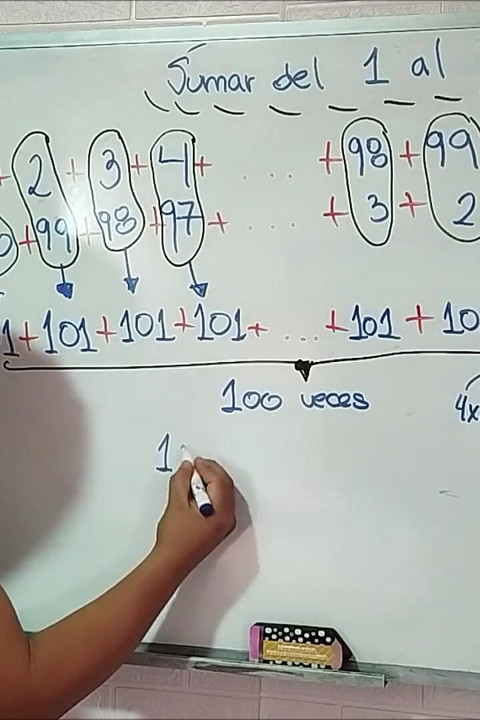 Sumar del 1 al
+ 2 + 3 + 4 + ... + 98 + 99
0 + 99 + 98 + 97 + ... + 3 2
1 + 101 + 101 + 101 + ... + 101 + 10
100 veces
4x
1